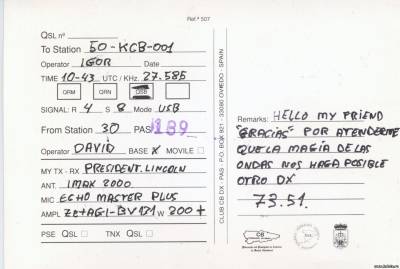 Ref.ª 507
QSL nº
To Station 50-KCB-001
Operator IGOR Date
TIME 10-43 UTC / KHz. 27.585
QRM QRN QSB
SIGNAL: R 4 S 8 Mode USB
From Station 30 PAS 189
Operator DAVID BASE X MOVILE
MY TX - RX PRESIDENT. LINCOLN
ANT. IMAX 2000
MIC ECHO MASTER PLUS
AMPL W 200+
PSE QSL TNX QSL
CLUB CB DX - PAS - P.O. BOX 921 - 33080 OVIEDO - SPAIN
Remarks: HELLO MY FRIEND
"GRACIAS" POR ATENDERME
QUE LA MAGIA DE LAS
ONDAS NOS HAGA POSIBLE
OTRO DX
73.51.
CB